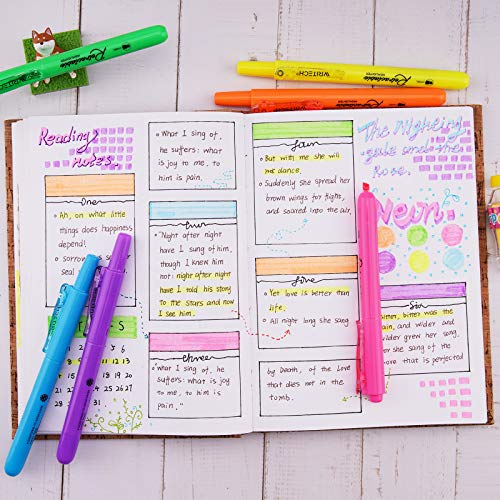 Reading
notes.
One
Ah, on what little
things does happiness
depend!
sorrow
seal
What I sing of,
he suffers: what
is joy to me, to
him is pain.
Four
Night after night
have I sung of him,
though I knew him
not: night after night
have I told his story
to the stars and now
I see him.
three
what I sing of, he
suffers: what is joy
to me, to him is
pain."
But with me she will
me dance,
Suddenly she spread her
brown wings for flight,
and soared into the air.
five
Yet love is better than
life.
All night long she sang
by Death, of the Love
that dies not in the
tomb.
The Nightin
gale and the
Rose.
Neon
Six
bitter, bitter was the
pain, and wilder and
wilder grew her song.
she sang of the
that is perfected
S
Retractable
HIGHLIGHTER
WRITECH
Retractable
HIGHLIGHTER
Retractable